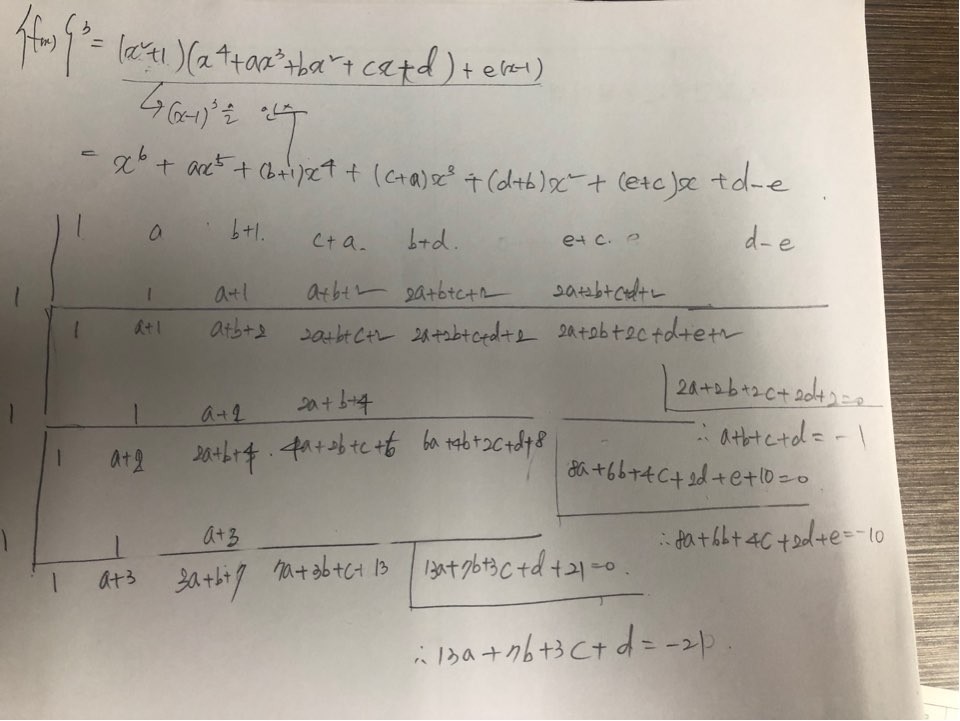 {f(x)}³ = (x²+1)(x⁴+ax³+bx²+cx+d)+e(x-1)
↳ (x-1)³을 인수
= x⁶ + ax⁵ + (b+1)x⁴ + (c+a)x³ + (d+b)x² + (e+c)x + d-e
1 a b+1. c+a. b+d. e+c. d-e
1 1 a+1 a+b+2 2a+b+c+2 2a+2b+c+d+2
1 a+1 a+b+2 2a+b+c+2 2a+2b+c+d+2 2a+2b+2c+d+e+2
2a+2b+2c+2d+2=0
1 1 a+2 2a+b+4
∴ a+b+c+d = -1
1 a+2 2a+b+4. 4a+2b+c+6 6a+4b+2c+d+8
8a+6b+4c+2d+e+10=0
1 1 a+3
∴ 8a+6b+4c+2d+e=-10
1 a+3 3a+b+7 7a+3b+c+13 13a+7b+3c+d+21=0.
∴ 13a+7b+3c+d = -21.